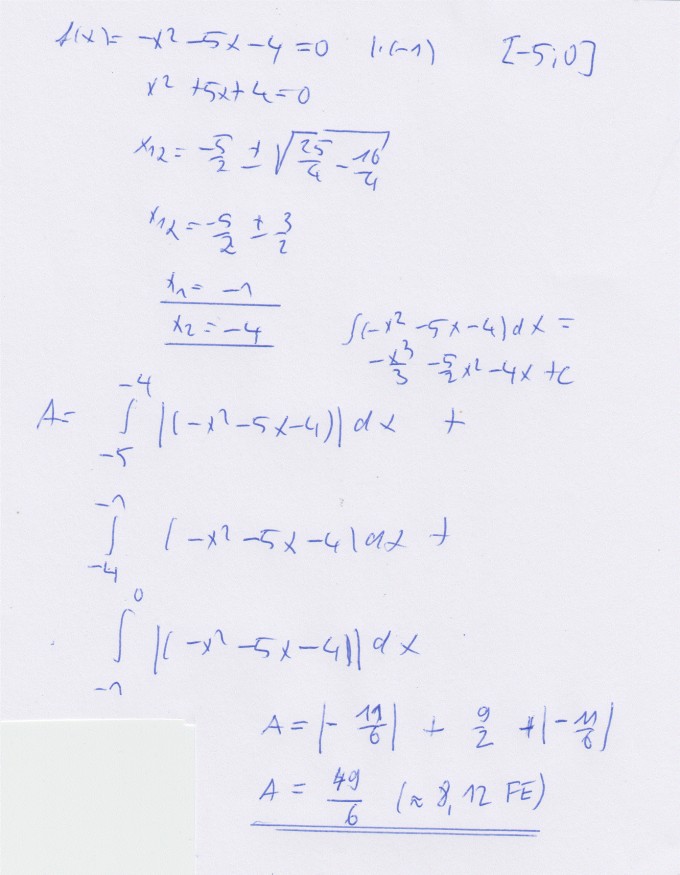 f(x)= -x² -5x -4 =0 |·(-1) [-5;0]
x² +5x+4=0
x₁₂= -5/2 ± √(25/4 - 16/4)
x₁₂= -5/2 ± 3/2
x₁= -1
x₂= -4
∫(-x² -5x -4)dx =
-x³/3 -5/2x² -4x +c
A= ∫₋₅⁻⁴ |(-x² -5x -4)| dx +
∫₋₄⁻¹ (-x² -5x -4)dx +
∫₋₁⁰ |(-x² -5x -4)| dx
A= |-11/6| + 9/2 + |-11/6|
A= 49/6 (≈ 8,12 FE)